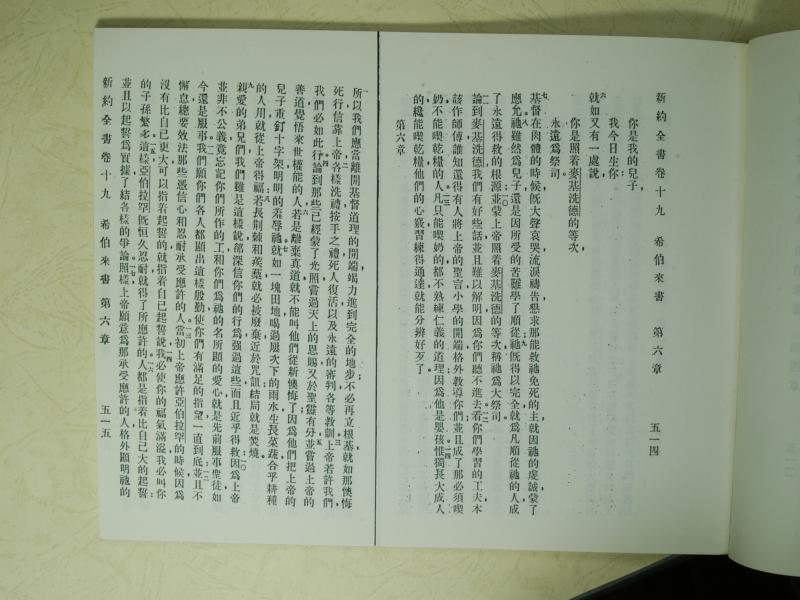 新約全書卷十九　希伯來書　第六章　五一四
你是我的兒子，
我今日生你，
就如又有一處說，
你是照着麥基洗德的等次，
永遠爲祭司。
基督在肉體的時候，旣大聲哀哭，流淚禱告懇求那能救祂免死的主，就因祂的虔誠蒙了
應允。祂雖然爲兒子，還是因所受的苦難學了順從。祂旣得以完全，就爲凡順從祂的人成
了永遠得救的根源，並蒙上帝照着麥基洗德的等次稱祂爲大祭司。
論到麥基洗德，我們有好些話，並且難以解明，因爲你們聽不進去。看你們學習的工夫，本
該作師傅，誰知還得有人將上帝的聖言小學的開端格外教導你們，並且成了那必須喫
奶不能喫乾糧的人。凡只能喫奶的都不熟練仁義的道理，因爲他是嬰孩。惟獨長大成人
的纔能喫乾糧，他們的心竅習練得通達，就能分辨好歹了。
第六章
所以我們應當離開基督道理的開端，竭力進到完全的地步，不必再立根基，就如那懊悔
死行，信靠上帝，各樣洗禮，按手之禮，死人復活，以及永遠的審判各等教訓。上帝若許我們，
我們必如此行。論到那些已經蒙了光照，嘗過天上的恩賜，又於聖靈有分，並嘗過上帝的
善道，覺悟來世權能的人，若是離棄眞道，就不能叫他們從新懊悔了。因爲他們把上帝的
兒子重釘十字架，明明的羞辱祂。就如一塊田地喝過屢次下的雨水，生長菜蔬，合乎耕種
的人用，就從上帝得福。若長荊棘和蒺藜，就必被廢棄，近於咒詛，結局就是焚燒。
親愛的弟兄們，我們雖是這樣說，却深信你們的行爲強過這些，而且近乎得救。因爲上帝
並非不公義，竟忘記你們所作的工和你們爲祂的名所顯的愛心，就是先前服事聖徒，如
今還是服事。我們願你們各人都顯出這樣殷勤，使你們有滿足的指望，一直到底，並且不
懈怠，總要效法那些憑信心和忍耐承受應許的人。當初上帝應許亞伯拉罕的時候，因爲
沒有比自己更大可以指着起誓的，就指着自己起誓說，我必使你的福氣滿溢，我必叫你
的子孫繁多。這樣，亞伯拉罕旣恒久忍耐，就得了所應許的。人都是指着比自己大的起誓，
並且以起誓爲實據，了結各樣的爭論。照樣，上帝願意爲那承受應許的人格外顯明祂的
新約全書卷十九　希伯來書　第六章　五一五